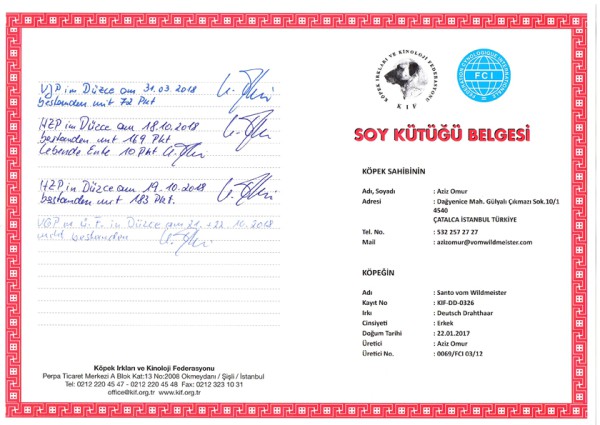 VJP in Düzce am 31.03.2018
bestanden mit 72 Pkt
HZP in Düzce am 18.10.2018
bestanden mit 169 Pkt
Lebende Ente 10 Pkt
HZP in Düzce am 19.10.2018
bestanden mit 183 Pkt
VGP m. Ü. F. in Düzce am 21.+22.10.2018
nicht bestanden
Köpek Irkları ve Kinoloji Federasyonu
Perpa Ticaret Merkezi A Blok Kat:13 No:2008 Okmeydanı / Şişli / İstanbul
Tel: 0212 220 45 47 - 0212 220 45 48 Fax: 0212 323 10 31
office@kif.org.tr www.kif.org.tr
KÖPEK IRKLARI VE KİNOLOJİ FEDERASYONU
KIF
FEDERATION CYNOLOGIQUE INTERNATIONALE
FCI
SOY KÜTÜĞÜ BELGESİ
KÖPEK SAHİBİNİN
Adı, Soyadı : Aziz Omur
Adresi : Dağyenice Mah. Gülyalı Çıkmazı Sok.10/1
4540
ÇATALCA İSTANBUL TÜRKİYE
Tel. No. : 532 257 27 27
Mail : azizomur@vomwildmeister.com
KÖPEĞİN
Adı : Santo vom Wildmeister
Kayıt No : KIF-DD-0326
Irkı : Deutsch Drahthaar
Cinsiyeti : Erkek
Doğum Tarihi : 22.01.2017
Üretici : Aziz Omur
Üretici No. : 0069/FCI 03/12